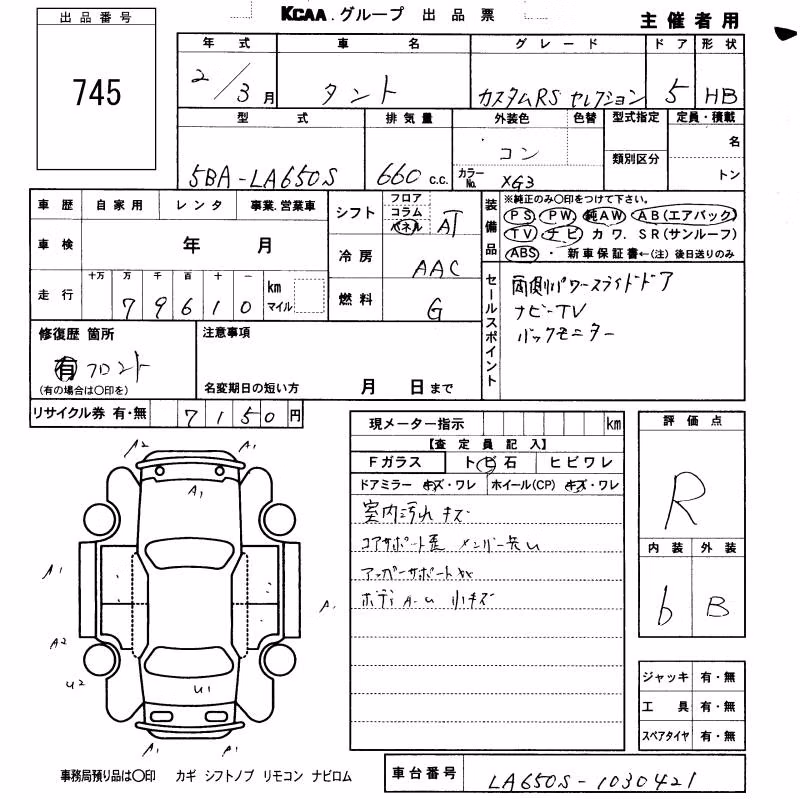 出品番号
745
KCAA.グループ 出品票
主催者用
年式 車名 グレード ドア 形状
2/3月 タント カスタムRS セレクション 5 HB
型式 排気量 外装色 色替 型式指定 定員・積載
5BA-LA650S 660 c.c. コン カラーNo. XG3 類別区分 名 トン
車歴 自家用 レンタ 事業.営業車
車検 年 月
走行 十万 万 千 百 十 一
79610 km マイル
シフト フロア コラム パネル AT
冷房 AAC
燃料 G
装備品 ※純正のみ〇印をつけて下さい。
PS・PW・純AW・AB(エアバック)
TV・ナビ・カワ.SR(サンルーフ)
ABS・新車保証書←(注)後日送りのみ
セールスポイント
両側パワースライドドア
ナビ-TV
バックモニター
修復歴 箇所
有 フロント
(有の場合は〇印を)
注意事項
名変期日の短い方 月 日まで
リサイクル券 有・無 7150円
現メーター指示 km
【査定員記入】
Fガラス トビ石 ヒビワレ
ドアミラー キズ・ワレ ホイール(CP) キズ・ワレ
室内汚れ キズ
コアサポート歪 メンバー
アッパーサポート
ボディ A-U 小キズ
評価点
R
内装 外装
b B
ジャッキ 有・無
工具 有・無
スペアタイヤ 有・無
A2 A1
A1
A1
A1
A2
U2 U1
A1 A1
事務局預り品は〇印 カギ シフトノブ リモコン ナビロム
車台番号 LA650S-1030421